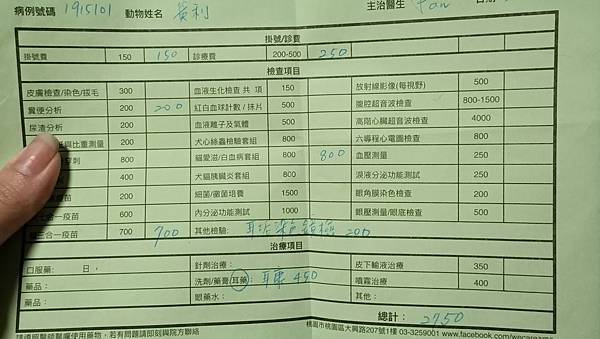 病例號碼 1915101 動物姓名 主治醫生 Pan
掛號/診費
掛號費 150 150 診療費 200-500 250
檢查項目
皮膚檢查/染色/拔毛 300 血液生化檢查 共 項 150 放射線影像(每視野) 500
糞便分析 200 200 紅白血球計數 / 抹片 500 腹腔超音波檢查 800-1500
尿液分析 200 血液離子及氣體 500 高階心臟超音波檢查 4000
與比重測量 200 犬心絲蟲檢驗套組 800 六導程心電圖檢查 800
穿刺 800 貓愛滋/白血病套組 800 800 血壓測量 250
400 犬貓胰臟炎套組 800 淚液分泌功能測試 250
疫苗 200 細菌/黴菌培養 1500 眼角膜染色檢查 200
三合一疫苗 600 內分泌功能測試 1000 眼壓測量/眼底檢查 500
三合一疫苗 700 700 其他檢驗: 耳垢染色鏡檢 200
治療項目
口服藥: 日, 針劑治療: 皮下輸液治療 350
藥品: 洗劑/藥膏/耳藥: 耳藥 450 噴霧治療 400
藥品: 眼藥水: 其他:
總計: 2750
請遵照醫師囑咐使用藥物,若有問題請即刻與院方聯絡 桃園市桃園區大興路207號1樓 03-3259001 www.facebook.com/wecare